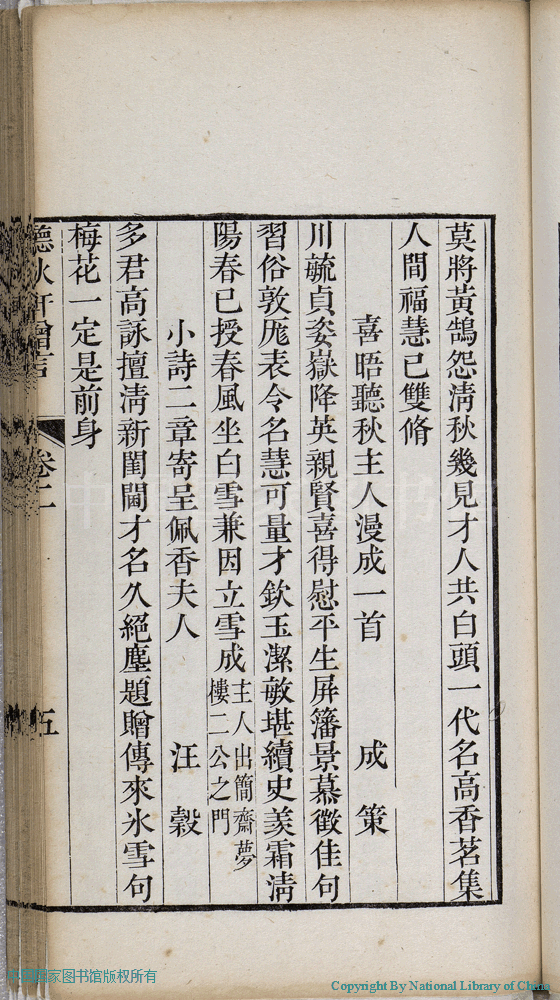 莫將黃鵠怨淸秋幾見才人共白頭一代名高香茗集
人間福慧已雙脩
喜晤聽秋主人漫成一首　成策
川毓貞姿嶽降英親賢喜得慰平生屏籓景慕徵佳句
習俗敦厖表令名慧可量才欽玉潔敏堪續史羨霜淸
陽春已授春風坐白雪兼因立雪成主人出簡齋夢樓二公之門
小詩二章寄呈佩香夫人　汪穀
多君高詠擅淸新閨閫才名久絕塵題贈傳來氷雪句
梅花一定是前身
聽秋軒贈言　卷二　五
中国国家图书馆版权所有
Copyright By National Library of China